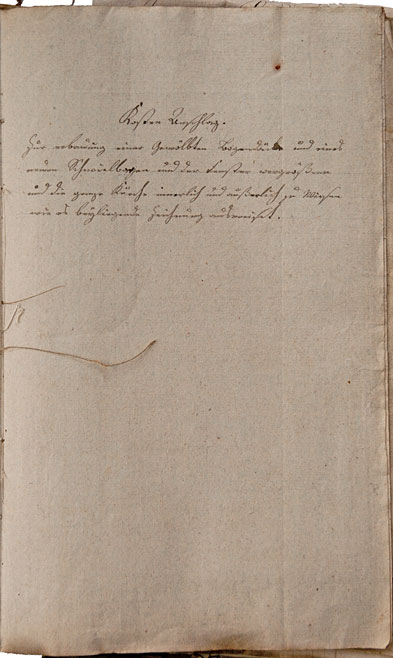 Kosten Anschlag.
Zur erbauung einer Gewölbten Bogendücke und eines
neuen Schwüelbogen und der Fenster vergrößern
und die ganze Kirche innerlich und äußerlich zu
wie es beÿliegende Zeichnung ausweiset.